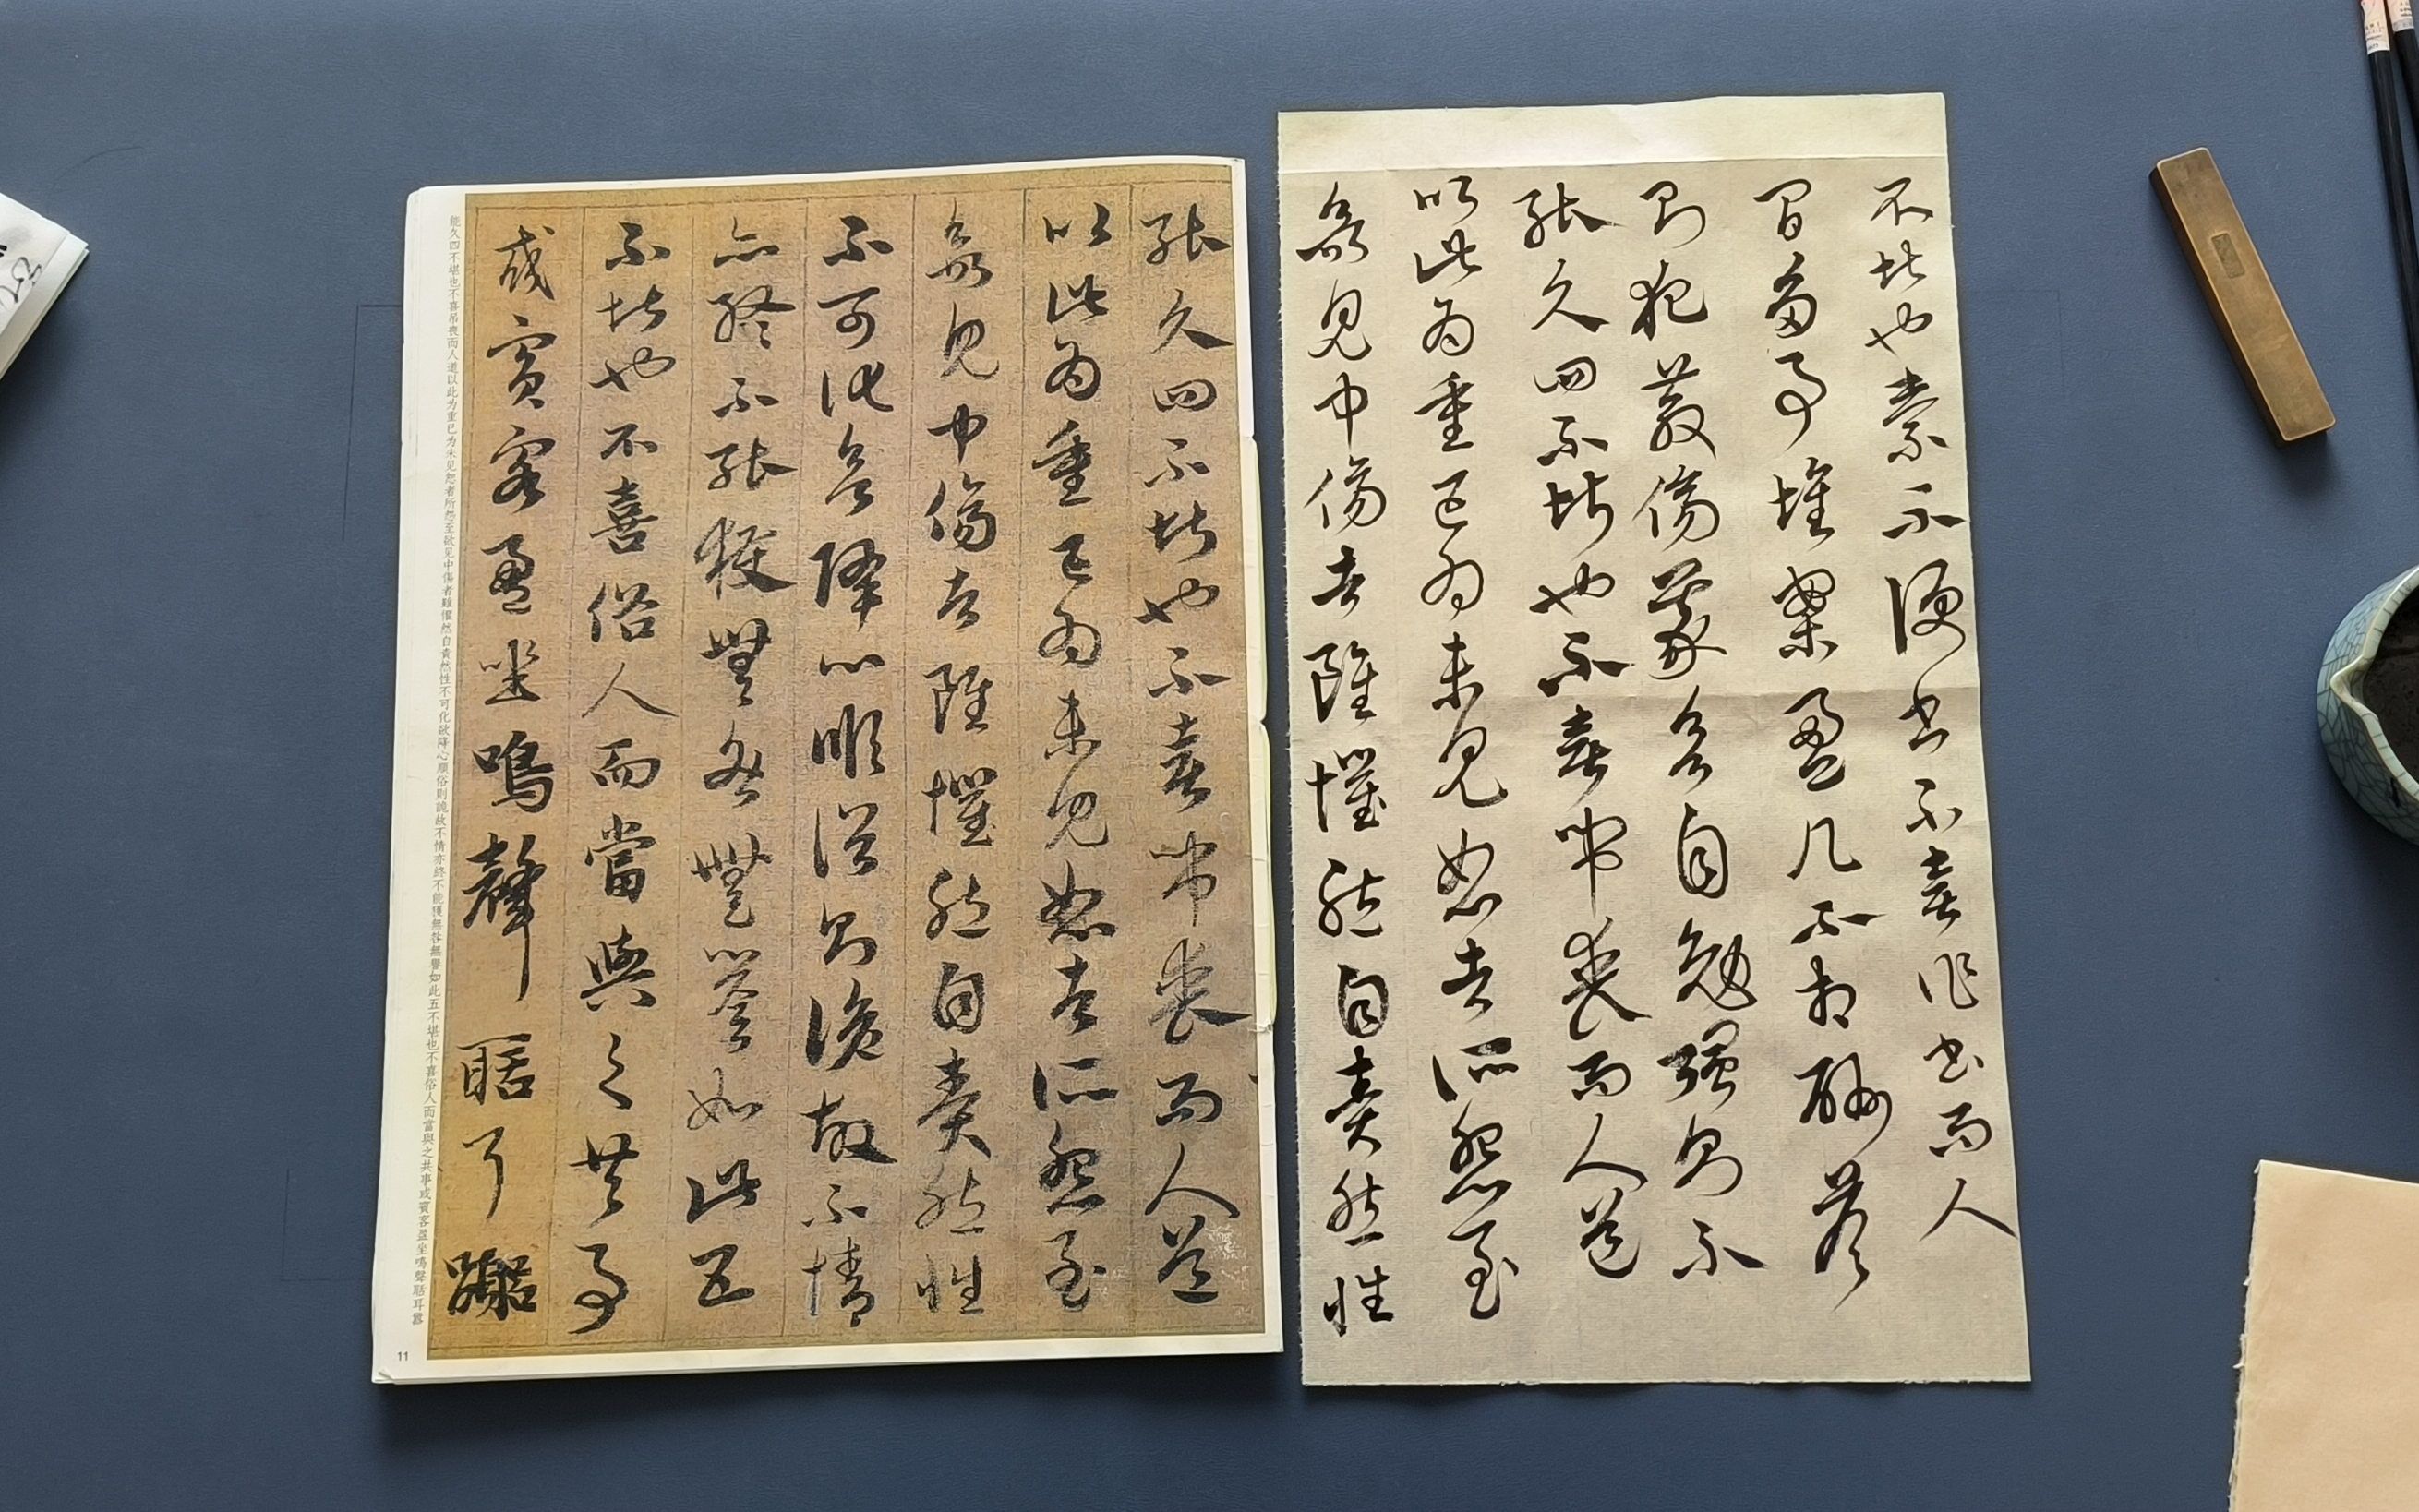 不堪也素不便書不喜作書而人
間多事堆案盈几不相酬答
則犯教傷義欲自勉强則不
能久四不堪也不喜弔喪而人道
以此為重已為未見恕者所怨至
欲見中傷者雖懼然自責然性
能久四不堪也不喜弔喪而人道
以此為重已為未見恕者所怨至
欲見中傷者雖懼然自責然性
不可化欲降心順俗則詭故不情
亦終不能獲無咎無譽如此五
不堪也不喜俗人而當與之共事
或賓客盈坐鳴聲聒耳囂
能久四不堪也不喜吊喪而人道以此为重已为未见恕者所怨至欲见中傷者雖懼然自責然性不可化欲降心順俗則詭故不情亦終不能獲無咎無譽如此五不堪也不喜俗人而當與之共事或賓客盈坐鳴聲聒耳囂
11